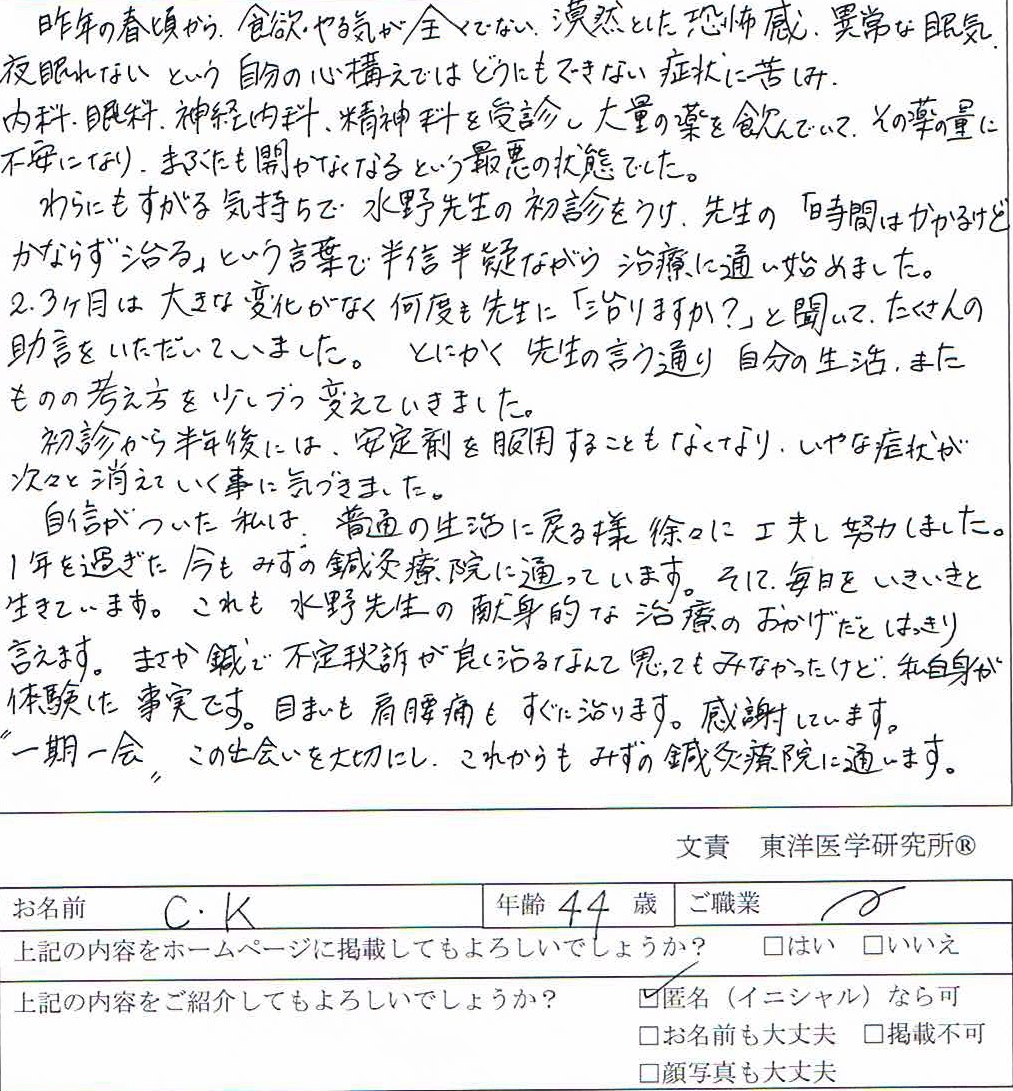 昨年の春頃から、食欲・やる気が全くでない、漠然とした恐怖感、異常な眠気、
夜眠れないという自分の心構えではどうにもできない症状に苦しみ、
内科、眼科、神経内科、精神科を受診し大量の薬を飲んでいて、その薬の量に
不安になり、まぶたも開かなくなるという最悪の状態でした。
わらにもすがる気持ちで水野先生の初診をうけ、先生の「時間はかかるけど
かならず治る」という言葉で半信半疑ながら治療に通い始めました。
2.3ヶ月は大きな変化がなく何度も先生に「治りますか?」と聞いて、たくさんの
助言をいただいていました。とにかく先生の言う通り自分の生活、また
ものの考え方を少しづつ変えていきました。
初診から半年後には、安定剤を服用することもなくなり、いやな症状が
次々と消えていく事に気づきました。
自信がついた私は、普通の生活に戻る様徐々に工夫し努力しました。
1年を過ぎた今もみずの鍼灸療院に通っています。そして、毎日をいきいきと
生きています。これも水野先生の献身的な治療のおかげだとはっきり
言えます。まさか鍼で不定愁訴が良く治るなんて思ってもみなかったけど、私自身が
体験した事実です。目まいも肩腰痛もすぐに治ります。感謝しています。
〝一期一会〟この出会いを大切にし、これからもみずの鍼灸療院に通います。
文責 東洋医学研究所®
お名前 C.K 年齢 44 歳 ご職業
上記の内容をホームページに掲載してもよろしいでしょうか? □はい □いいえ
上記の内容をご紹介してもよろしいでしょうか? ☑匿名(イニシャル)なら可
□お名前も大丈夫 □掲載不可
□顔写真も大丈夫